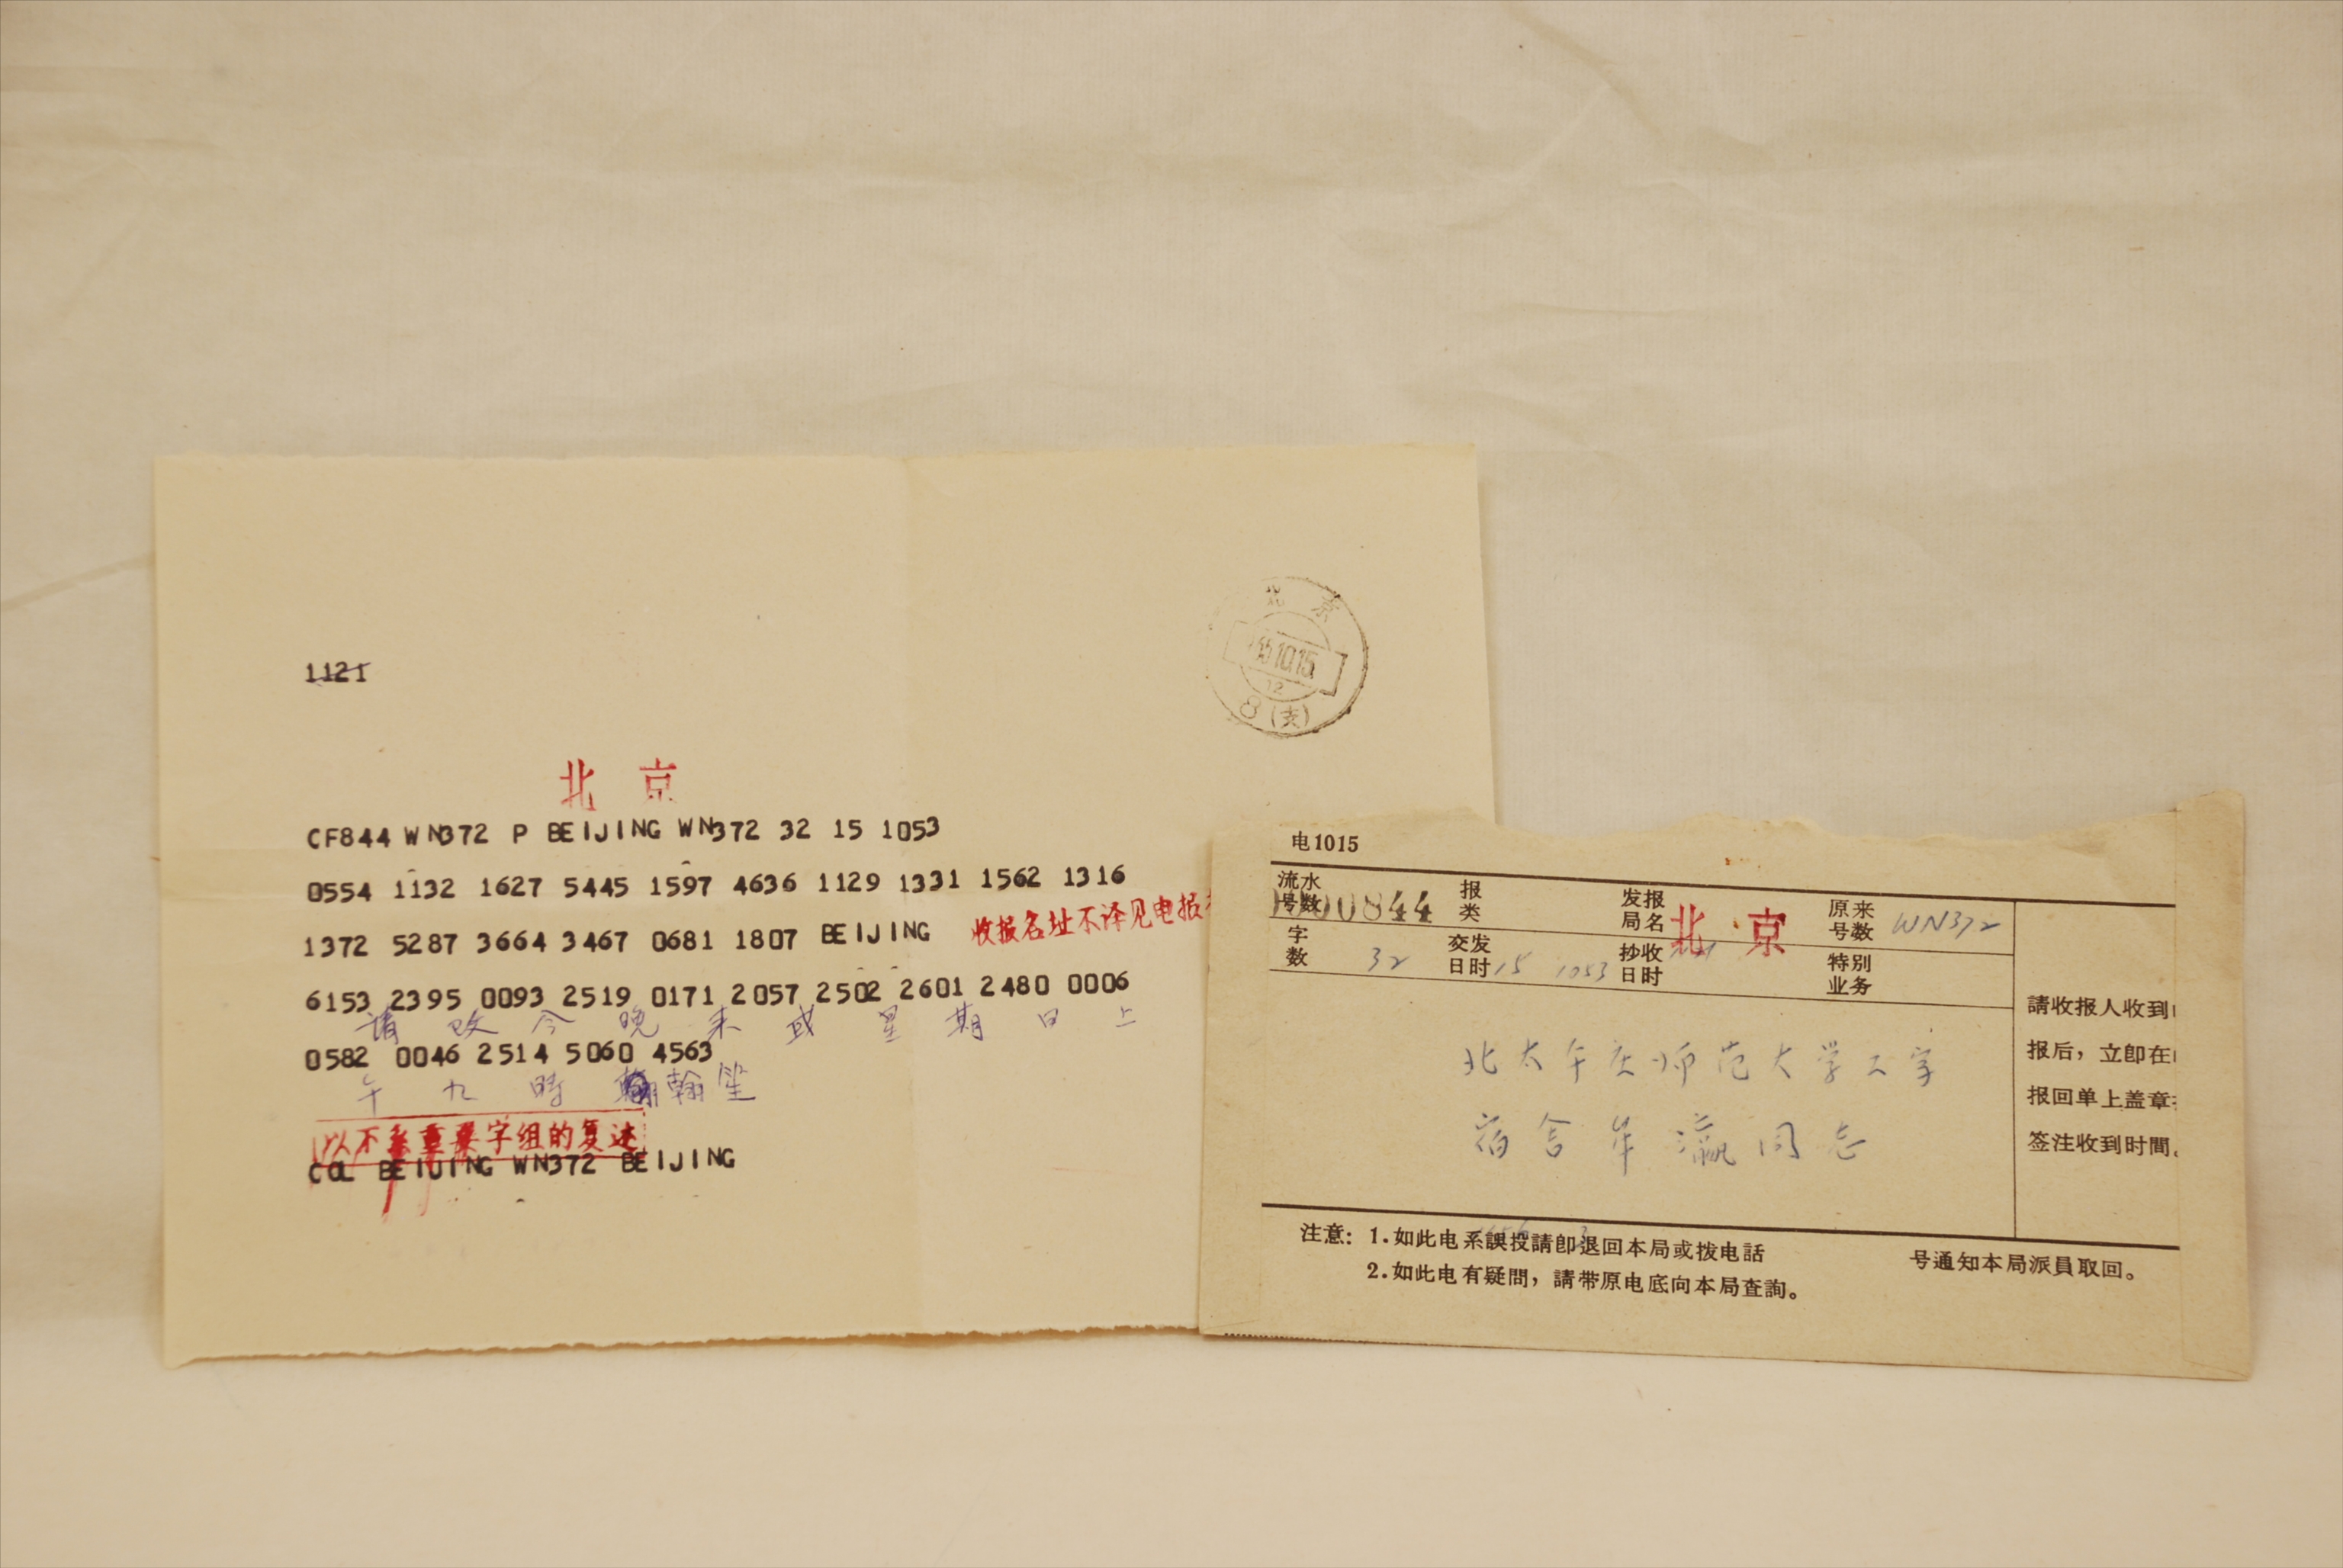 1121
北京
65.10.15
12
8(支)
北 京
CF844 WN372 P BEIJING WN372 32 15 1053
0554 1132 1627 5445 1597 4636 1129 1331 1562 1316
1372 5287 3664 3467 0681 1807 BEIJING 收报名址不译见电报
6153 2395 0093 2519 0171 2057 2502 2601 2480 0006
請 改 今 晚 来 或 星 期 日 上
0582 0046 2514 5060 4563
午 九 時 翰笙
字组的复述
COL BEIJING WN372 BEIJING
电1015
流水号数 000844 报类 发报局名 北京 原来号数 WN372
字数 32 交发日时 15 1053 抄收日时 特别业务
北太平庄师范大学工字
宿舍牟瀛同志
請收报人收到
报后，立卽在
报回单上盖章
签注收到时間。
注意：1.如此电系誤投請卽退回本局或拨电話 号通知本局派員取回。
2.如此电有疑問，請带原电底向本局查詢。